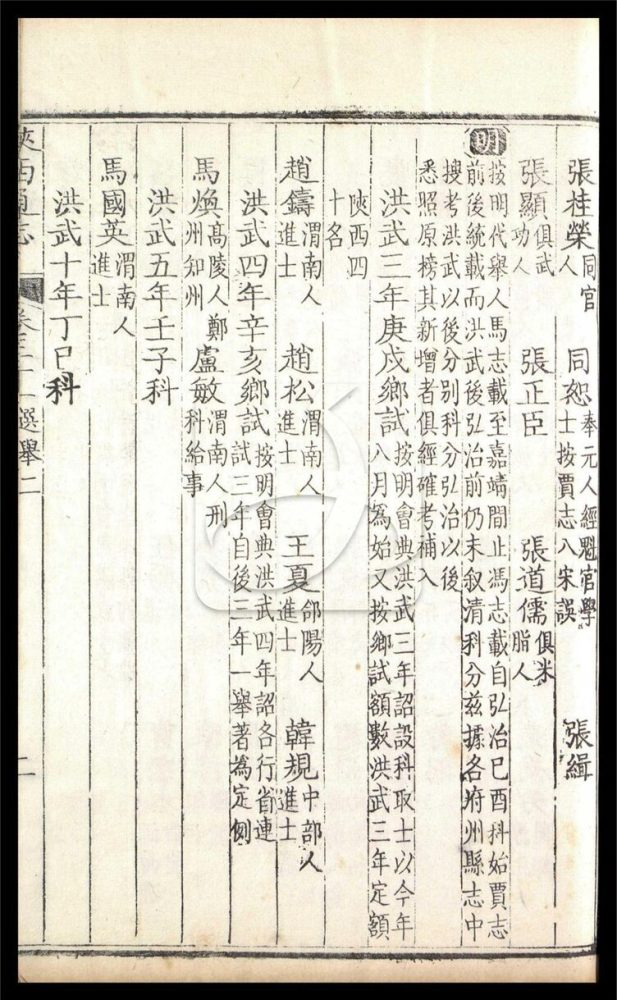 張桂榮同官人 同恕奉元人經魁官學士按賈志八宋誤 張緝
張顯俱武功人 張正臣 張道儒俱米脂人
明
按明代舉人馬志載至嘉靖間止馮志載自弘治己酉科始賈志
前後統載而洪武後弘治前仍未叙清科分茲據各府州縣志中
搜考洪武以後分别科分弘治以後
悉照原榜其新增者俱經確考補入
洪武三年庚戌鄉試按明會典洪武三年詔設科取士以今年八月為始又按鄉試額數洪武三年定額
陝西四十名
趙鑄渭南人進士 趙松渭南人進士 王夏郃陽人進士 韓規中部人進士
洪武四年辛亥鄉試按明會典洪武四年詔各行省連試三年自後三年一舉著為定例
馬煥高陵人鄭州知州 盧敏渭南人刑科給事
洪武五年壬子科
馬國英渭南人進士
洪武十年丁巳科
陝西通志 卷三十一 選舉二 二